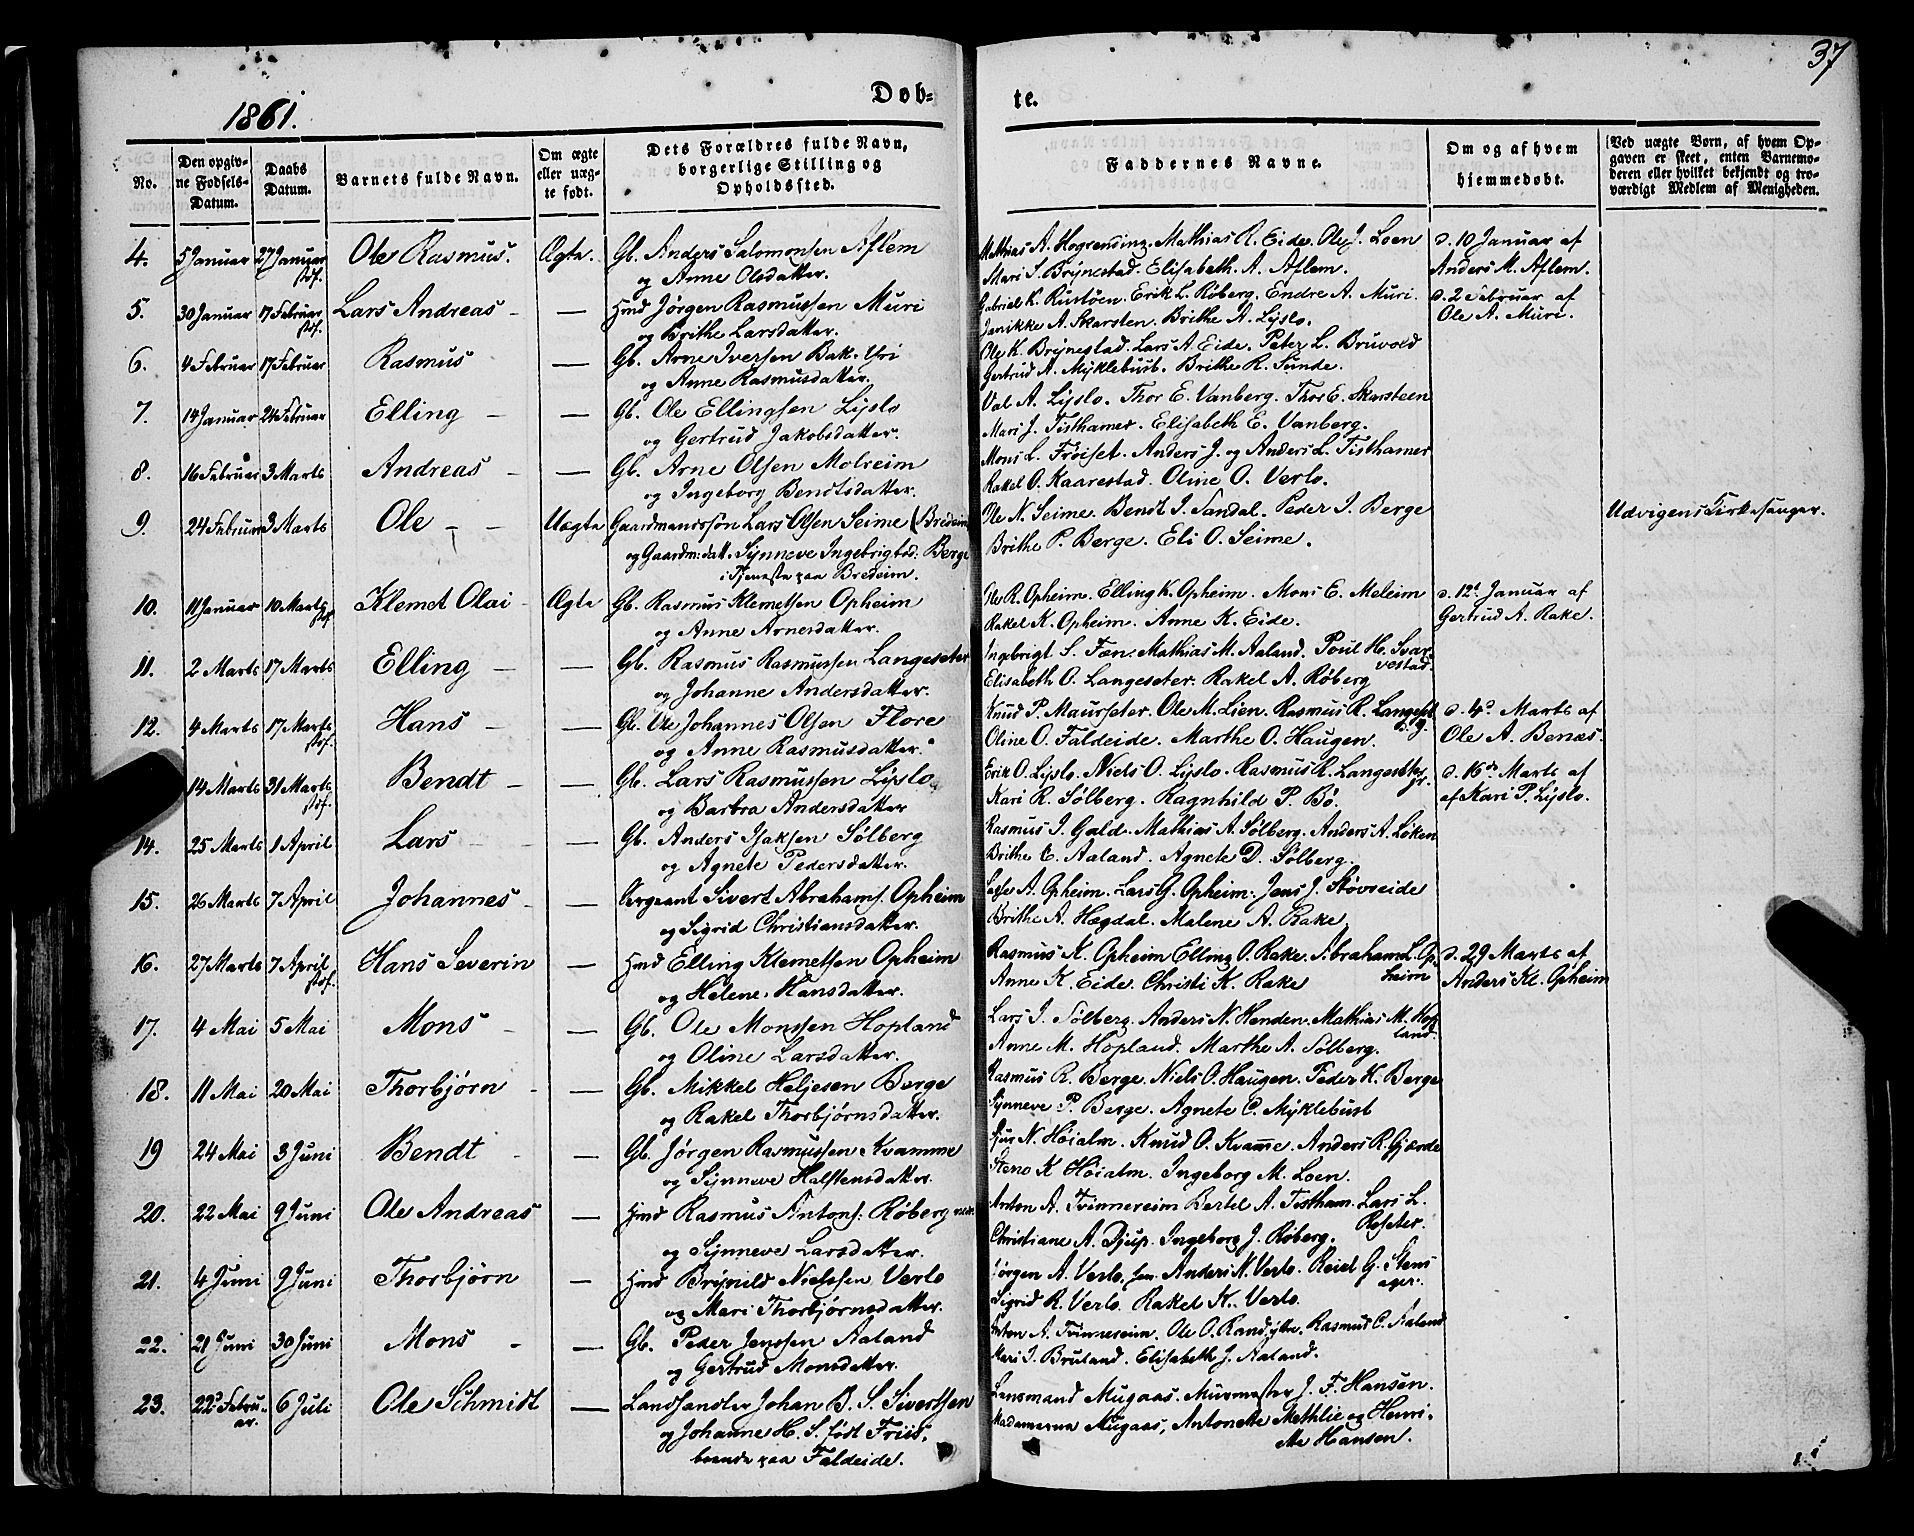 37
1861.
Døb-
te.
No.
Den opgiv-
ne Fødsels-
Datum.
Daabs
Datum.
Barnets fulde Navn.
Om ægte
eller uæg-
te født.
Dets Forældres fulde Navn,
borgerlige Stilling og
Opholdssted.
Faddernes Navne.
Om og af hvem
hjemmedøbt.
Ved uægte Børn, af hvem Op-
gaven er skeet, enten Barnemo-
deren eller hvilket bekjendt og tro-
værdigt Medlem af Menigheden.
4. 5 Januar 27 Januar Ole Rasmus. Ægte. Gb. Anders Salomonsen Aflem
og Anne Olsdatter.
Mathias A. Hogrending. Mathias R. Eide. Ole J. Loen
Mari S. Brynestad. Elisabeth A. Aflem.
d. 10 Januar af
Anders M. Aflem.
5. 30 Januar 17 Februar Lars Andreas - — Hmd Jørgen Rasmussen Muri
og Brithe Larsdatter.
Gabriel K. Rustøen. Erik L. Røberg. Endre A. Muri.
Janikke A. Skarsten. Brithe A. Lyslo.
d. 2 Februar af
Ole A. Muri.
6. 4 Februar 17 Februar Rasmus — Gb. Arne Iversen Bak-Yri
og Anne Rasmusdatter.
Ole K. Brynestad. Lars A. Eide. Peter L. Bruvold
Gertrud A. Myklebust. Brithe R. Sunde.
7. 14 Januar 24 Februar Elling - — Gb. Ole Ellingsen Lyslo
og Gertrud Jakobsdatter.
Val A. Lyslo. Thor E. Vanberg. Thor E. Skarsteen
Mari J. Tisthamer. Elisabeth E. Vanberg.
8. 16 Februar 3 Marts Andreas - — Gb. Arne Olsen Molreim
og Ingeborg Bendtsdatter.
Mons L. Frøiset. Anders J. og Anders L. Tisthamer
Rakel O. Kaarestad. Oline O. Verlo.
9. 24 Februar 3 Marts Ole - - Uægte Gaardmandssøn Lars Olsen Seime (Bredeim
og Gaardm: datt. Synneve Ingebrigtsd: Berge
i Tjeneste paa Bredeim.
Ole N. Seime. Bendt J. Sandal. Peder J. Berge
Brithe P. Berge. Eli O. Seime.
Udvigens Kirkesanger.
10. 11 Januar 10 Marts Klemet Olai - Ægte Gb. Rasmus Klemetsen Opheim
og Anne Arnesdatter.
Ole R. Opheim. Elling K. Opheim. Mons E. Meleim
Rakel K. Opheim. Anne K. Eide.
d. 12t Januar af
Gertrud A. Rake.
11. 2 Marts 17 Marts Elling - — Gb. Rasmus Rasmussen Langeseter
og Johanne Andersdatter.
Ingebrigt S. Fæn. Mathias M. Aaland. Poul H. Svar-
vestad.
Elisabeth O. Langeseter. Rakel A. Røberg
12. 4 Marts 17 Marts Hans - — Gb. Ole Johannes Olsen Flore
og Anne Rasmusdatter.
Knud P. Maurseter. Ole M. Lien. Rasmus R. Langeset
Oline O. Faldeide. Marthe O. Haugen.
d. 4d Marts af
Ole A. Benæs.
14 Marts 31 Marts Bendt - — Gb. Lars Rasmussen Lyslo
og Barbra Andersdatter
Erik O. Lyslo. Niels O. Lyslo. Rasmus R. Langesether
Kari R. Sølberg. Ragnhild P. Bø.
d. 16de Marts af
af Kari P. Lyslo.
14. 25 Marts 1 April Lars - - — Gb. Anders Isaksen Sølberg
og Agnete Pedersdatter.
Rasmus J. Gald. Mathias A. Sølberg. Anders A. Løken
Brithe E. Aaland. Agnete D. Sølberg.
15. 26 Marts 7 April Johannes - — Sergeant Sivert Abrahams. Opheim
og Sigrid Christiansdatter.
Lasse A. Opheim. Lars G. Opheim. Jens J. Støvseide
Brithe A. Hægdal. Malene A. Rake
16. 27 Marts 7 April Hans Severin — Hmd Elling Klemetsen Opheim
og Helene Hansdatter.
Rasmus K. Opheim Elling O. Rake. Abraham L. Op-
heim
Anne K. Eide. Christi K. Rake
d. 29 Marts af
Anders Kl. Opheim
17. 4 Mai 5 Mai Mons - — Gb. Ole Monssen Hopland
og Oline Larsdatter.
Lars J. Sølberg. Anders N. Henden. Mathias M. Hop-
land.
Anne M. Hopland. Marthe A. Sølberg.
18. 11 Mai 20 Mai Thorbjørn - — Gb. Mikkel Heljesen Berge
og Rakel Thorbjørnsdatter.
Rasmus R. Berge. Niels O. Haugen. Peder K. Berge
Synneve P. Berge. Agnete C. Myklebust
19 24 Mai 3 Juni Bendt - — Gb. Jørgen Rasmussen Kvamme
og Synneve Halstensdatter.
Sjur N. Høialm. Knud O. Kvamme. Anders R. Gjærde
Steno K Høialm. Ingeborg M. Loen.
20. 22 Mai 9 Juni Ole Andreas — Hmd Rasmus Antons: Røberg
og Synneve Larsdatter.
Anton A. Tvinnereim Bertel A. Tistham. Lars L.
Roseter.
Christiane A. Djup. Ingeborg J. Røberg.
21. 4 Juni 9 Juni Thorbjørn — Hmd Brynild Nielssen Verlo
og Mari Thorbjørnsdatter.
Jørgen A. Verlo. sen. Anders N. Verlo. Reiel G. Stens
ager.
Sigrid R. Verlo. Rakel K. Verlo.
22. 21 Juni 30 Juni Mons - — Gb. Peder Jenssen Aaland
og Gertrud Monsdatter.
Anton A. Tvinnereim. Ole O. Rand, ytre. Rasmus C. Aaland
Mari J. Bruland. Elisabeth J. Aaland.
23. 22d Febru-
ar. 6 Juli Ole Schmidt — Landhandler Johan B. S. Sivertsen
og Johanne H. S. født Friis,
boende paa Faldeide.
Lensmand Mugaas. Murmester J. F. Hansen.
Madamerne Mugaas, Antonette Mathlie og Henri-
ette Hansen.